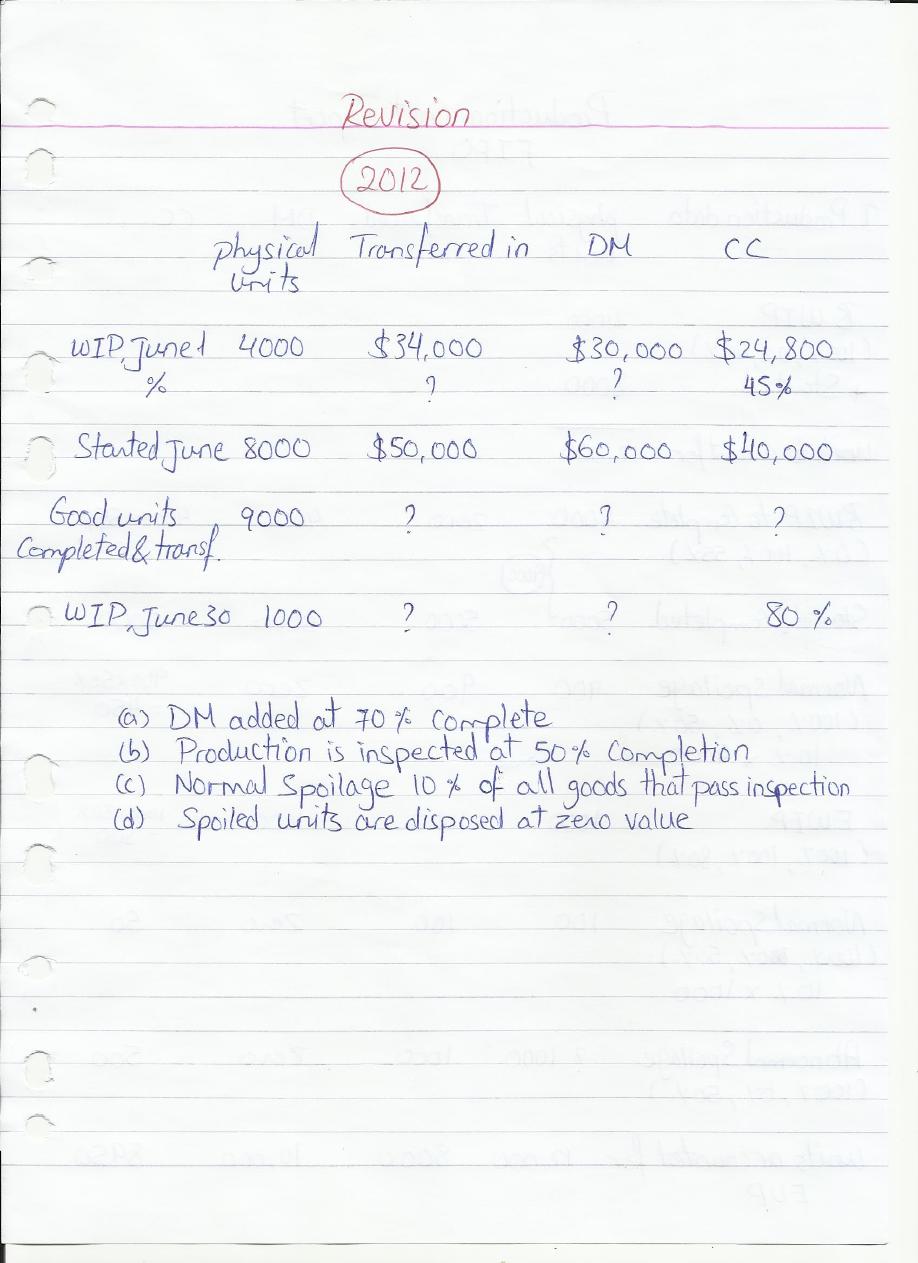 Revision
2012
physical Transferred in DM CC
units
WIP, June 1 4000 $34,000 $30,000 $24,800
% ? ? 45%
Started June 8000 $50,000 $60,000 $40,000
Good units 9000 ? ? ?
Completed & transf.
WIP, June 30 1000 ? ? 80 %
(a) DM added at 70 % complete
(b) Production is inspected at 50 % completion
(c) Normal Spoilage 10 % of all goods that pass inspection
(d) Spoiled units are disposed at zero value